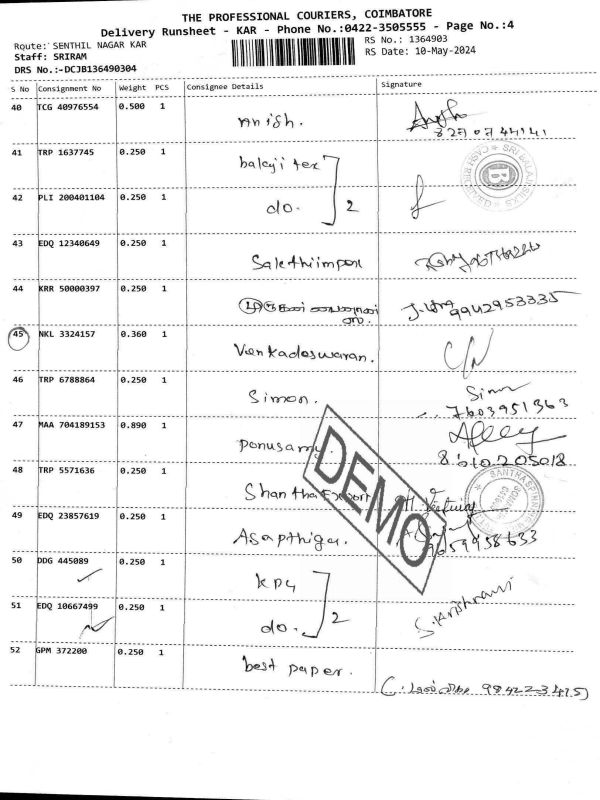 THE PROFESSIONAL COURIERS, COIMBATORE
Delivery Runsheet - KAR - Phone No.:0422-3505555 - Page No.:4
Route: SENTHIL NAGAR KAR
RS No.: 1364903
Staff: SRIRAM
RS Date: 10-May-2024
DRS No.:-DCJB136490304
S No Consignment No Weight PCS Consignee Details Signature
40 TCG 40976554 0.500 1 Anish.
41 TRP 1637745 0.250 1 balaji tex
42 PLI 200401104 0.250 1 do. 2
43 EDQ 12340649 0.250 1
44 KRR 50000397 0.250 1 9942953335
45 NKL 3324157 0.360 1 Venkadeswaran.
46 TRP 6788864 0.250 1 Simon. 7603951363
47 MAA 704189153 0.890 1 Ponusamy
48 TRP 5571636 0.250 1 Shantha Export
49 EDQ 23857619 0.250 1 9659958633
50 DDG 445089 0.250 1
51 EDQ 10667499 0.250 1 do. 2
52 GPM 372200 0.250 1 best paper.
DEMO